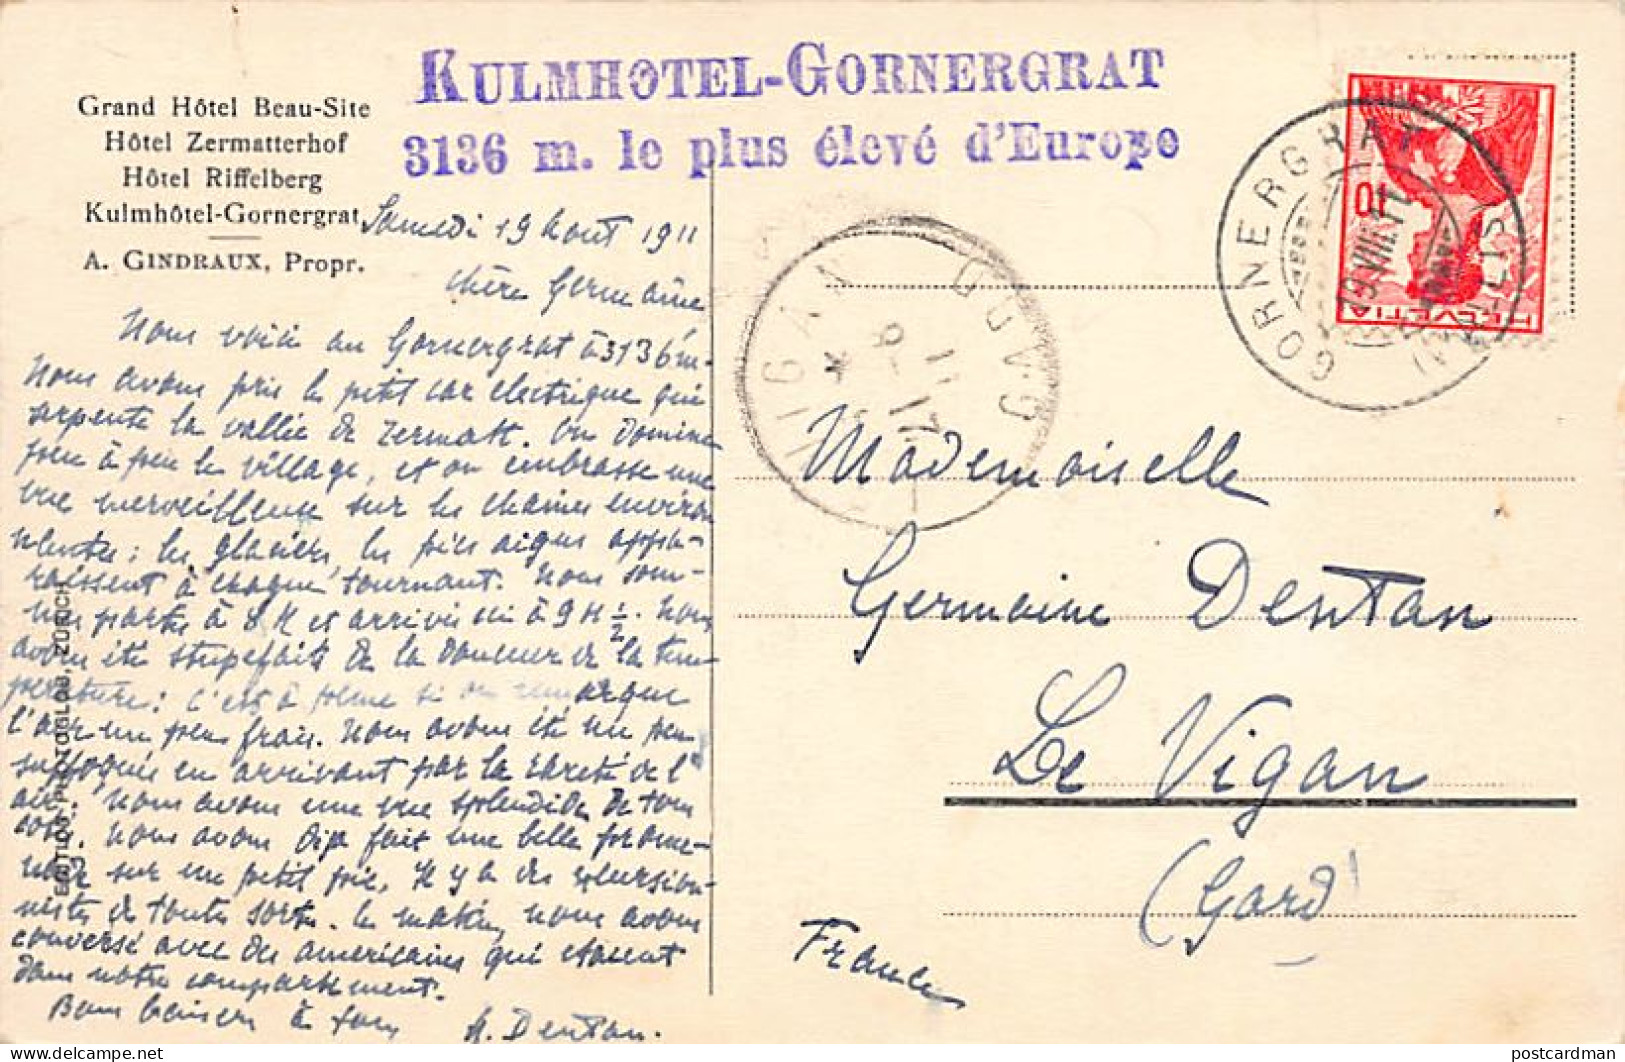 KULMHOTEL-GORNERGRAT
3136 m. le plus élevé d'Europe
Grand Hôtel Beau-Site
Hôtel Zermatterhof
Hôtel Riffelberg
Kulmhôtel-Gornergrat
A. GINDRAUX, Propr.
Samedi 19 Aout 1911
Chère Germaine
Nous voici au Gornergrat à 3136 m.
Nous avons pris le petit car électrique qui
serpente la vallée de Zermatt. On domine
peu à peu le village, et on embrasse une
vue merveilleuse sur les chaines environ
nantes : les glaciers, les pics aigus appa-
raissent à chaque tournant. Nous som-
mes partis à 8 h et arrivés ici à 9 h ½. Nous
avons été stupefaits de la douceur de la tem-
perature : c'est à peine si on remarque
l'air un peu frais. Nous avons été un peu
suffoqués en arrivant par la rareté de l'
air. Nous avons une vue splendide de tous
cotés. Nous avons déja fait une belle prome-
nade sur un petit pic. Il y a des excursion-
nistes de toutes sortes. Ce matin, nous avons
conversé avec des américains qui étaient
dans notre compartiment.
Bons baisers à tous
A. Dentan.
EDITION PHOTOGLOB, ZÜRICH
GORNERGRAT
19.VIII.11
(WALLIS)
10
HELVETIA
VIGAN
GARD
Mademoiselle
Germaine Dentan
Le Vigan
(Gard)
France
postcardman